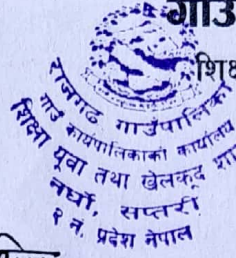 गाउँ
शिक्ष
राजगढ गाउँपालिका
गाउँ कार्यपालिकाको कार्यालय
शिक्षा युवा तथा खेलकूद शा
नर्घो, सप्तरी
२ नं. प्रदेश नेपाल